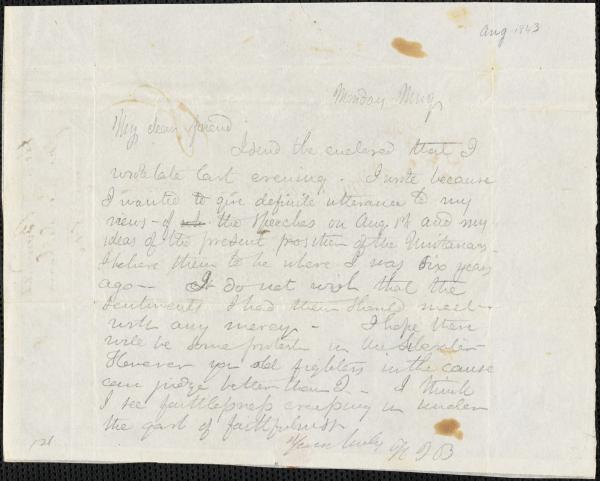 Aug 1843
Monday Mrng
My dear friend
I send the enclosed that I
wrote late last evening. I wrote because
I wanted to give definite utterance to my
views - of the speeches on Aug 1st and my
ideas of the present position of the Unitarians.
I believe them to be where I was six years
ago - I do not wish that the
sentiments I had then should meet
with any mercy - I hope there
will be some protest in the Liberator
However you old fighters in the cause
can judge better than I - I think
I see faithlessness creeping in under
the garb of faithfulness
Yours truly